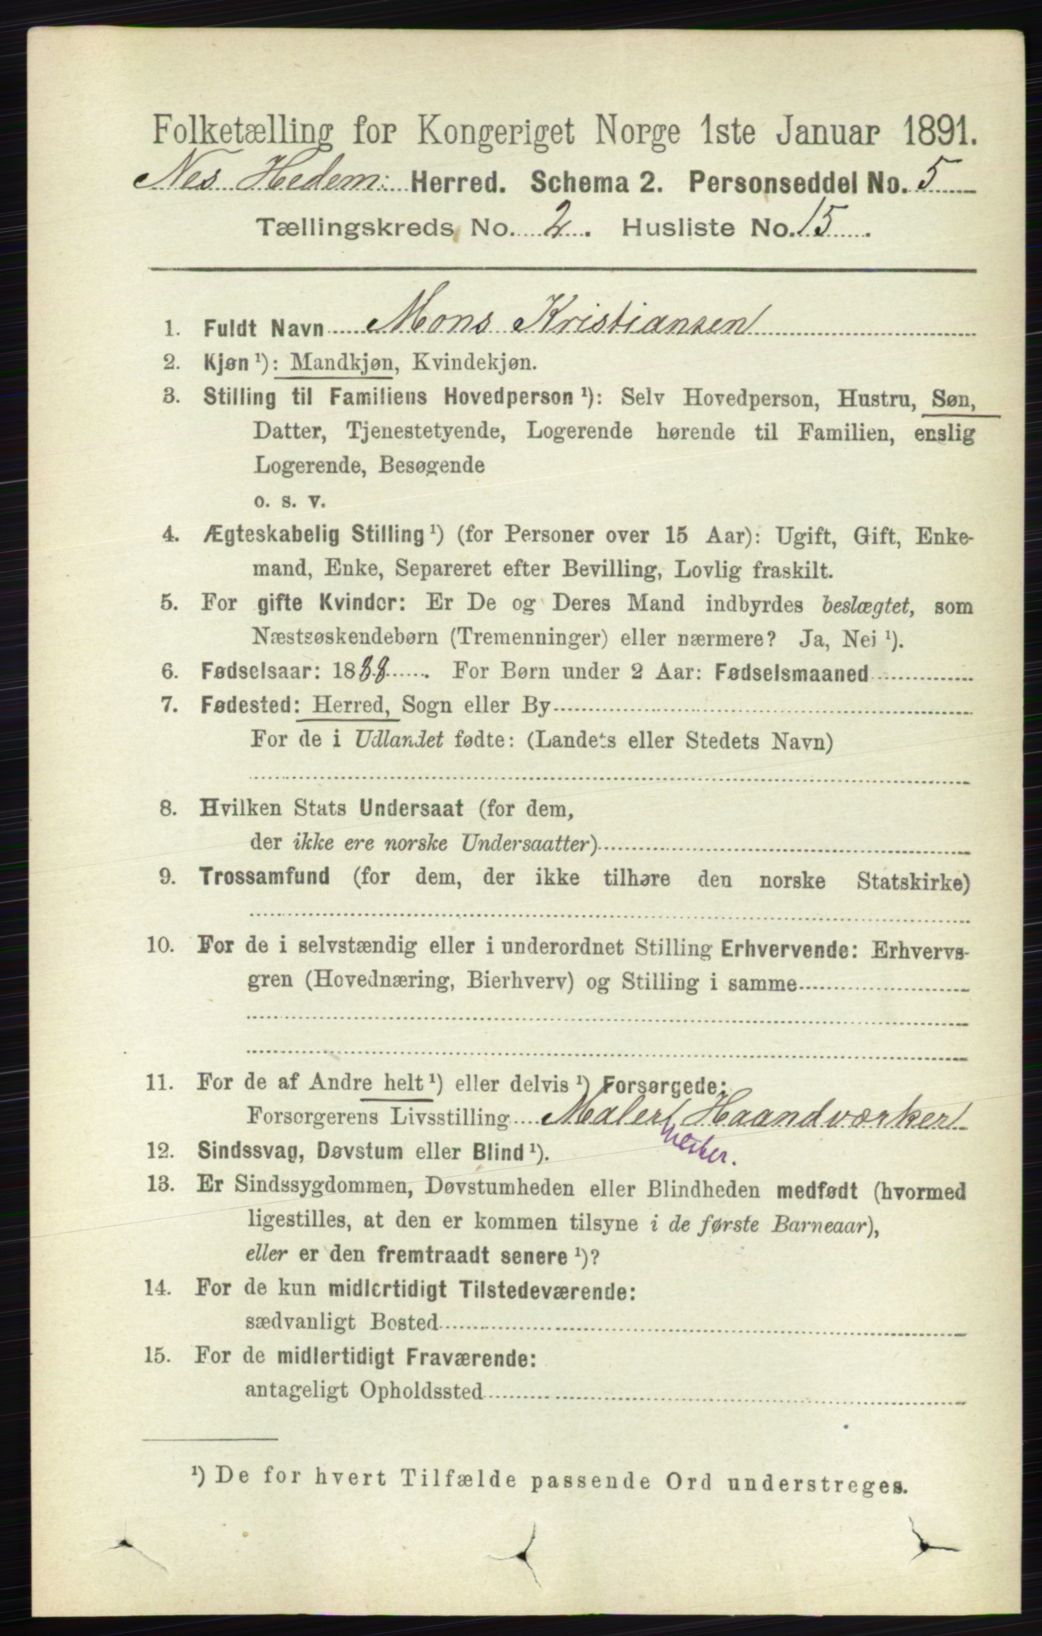 Folketælling for Kongeriget Norge 1ste Januar 1891.
Nes Hedem: Herred. Schema 2. Personseddel No. 5
Tællingskreds No. 2. Husliste No. 15.
1. Fuldt Navn Mons Kristiansen
2. Kjøn ¹): Mandkjøn, Kvindekjøn.
3. Stilling til Familiens Hovedperson ¹): Selv Hovedperson, Hustru, Søn,
Datter, Tjenestetyende, Logerende hørende til Familien, enslig
Logerende, Besøgende
o. s. v.
4. Ægteskabelig Stilling ¹) (for Personer over 15 Aar): Ugift, Gift, Enke-
mand, Enke, Separeret efter Bevilling, Lovlig fraskilt.
5. For gifte Kvinder: Er De og Deres Mand indbyrdes beslægtet, som
Næstsøskendebørn (Tremenninger) eller nærmere? Ja, Nei ¹).
6. Fødselsaar: 1888. For Børn under 2 Aar: Fødselsmaaned
7. Fødested: Herred, Sogn eller By
For de i Udlandet fødte: (Landets eller Stedets Navn)
8. Hvilken Stats Undersaat (for dem,
der ikke ere norske Undersaatter)
9. Trossamfund (for dem, der ikke tilhøre den norske Statskirke)
10. For de i selvstændig eller i underordnet Stilling Erhvervende: Erhvervs-
gren (Hovednæring, Bierhverv) og Stilling i samme
11. For de af Andre helt ¹) eller delvis ¹) Forsørgede:
Forsørgerens Livsstilling Maler Haandværker
12. Sindssvag, Døvstum eller Blind ¹).
13. Er Sindssygdommen, Døvstumheden eller Blindheden medfødt (hvormed
ligestilles, at den er kommen tilsyne i de første Barneaar),
eller er den fremtraadt senere ¹)?
14. For de kun midlertidigt Tilstedeværende:
sædvanligt Bosted
15. For de midlertidigt Fraværende:
antageligt Opholdssted
¹) De for hvert Tilfælde passende Ord understreges.